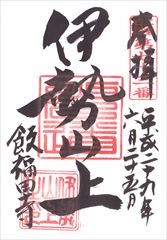 奉拝
平成二十九年
六月二十五日
伊勢山上
飯福田寺